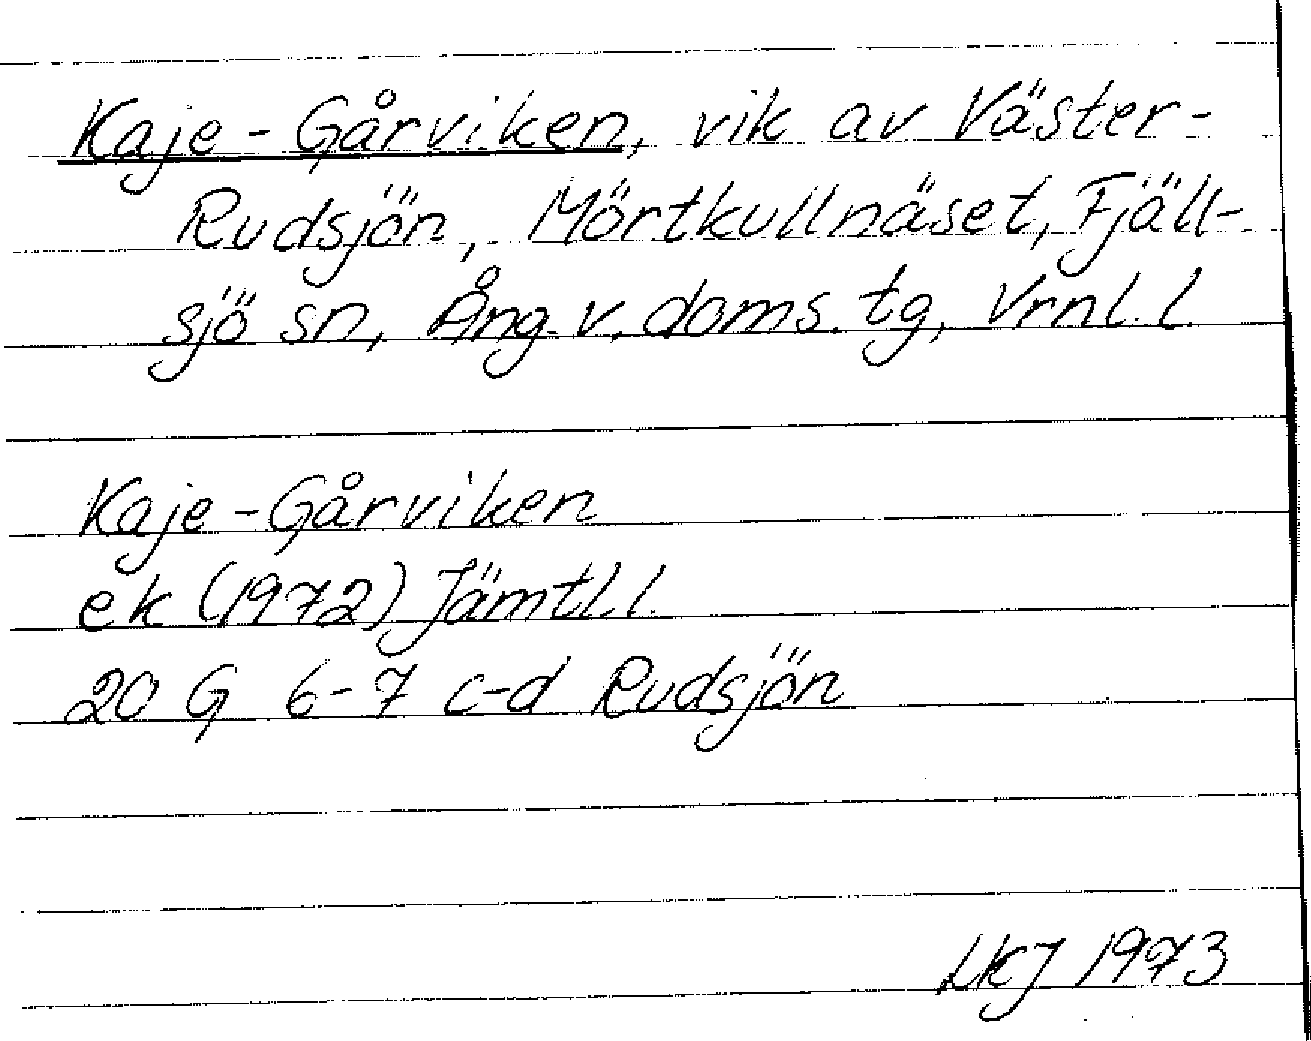 Kaje-Gårviken, vik av Väster-
Rudsjön, Mörtkullnäset, Fjäll-
sjö sn, Ång. v. doms. tg, Vrnl. l.
Kaje-Gårviken
ek (1972) Jämtl. l.
20 G 6-7 c-d Rudsjön
LKJ 1973